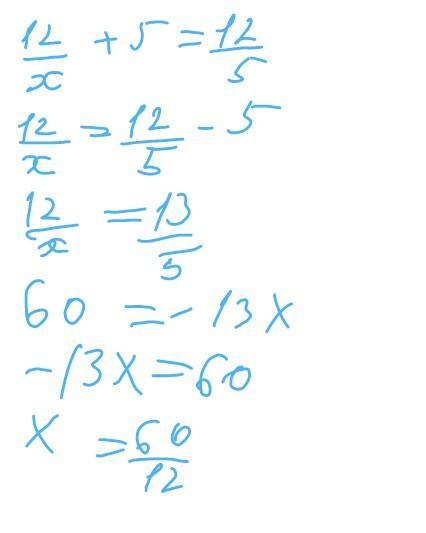 12/x + 5 = 12/5
12/x = 12/5 - 5
12/x = 13/5
60 = - 13x
-13x = 60
x = 60/12